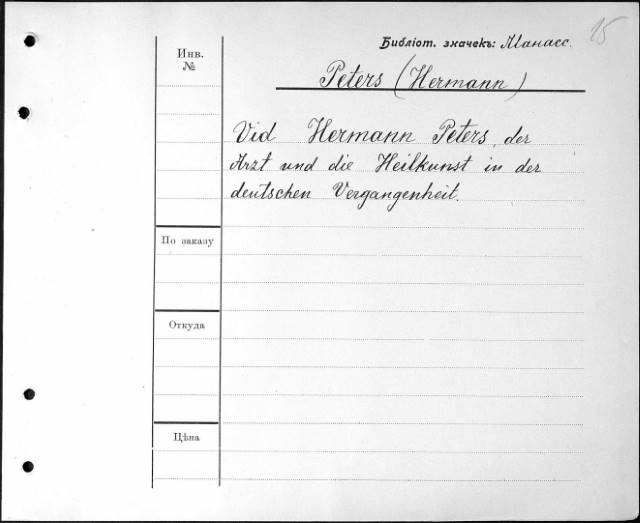 15
Библіот. значекъ: Манасс.
Инв.
№
Peters (Hermann)
Vid Hermann Peters, der
Arzt und die Heilkunst in der
deutschen Vergangenheit.
По заказу
Откуда
Цѣна